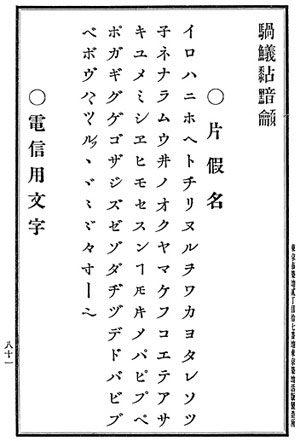 ○片假名
イロハニホヘトチリヌルヲワカヨタレソツ
子ネナラムウ井ノオクヤマケフコエテアサ
キユメミシヱヒモセスンヿ𪜈キメパピプペ
ポガギグゲゴザジズゼゾダヂヅデドバビブ
ベボヴ々寸ー
○電信用文字
八十一